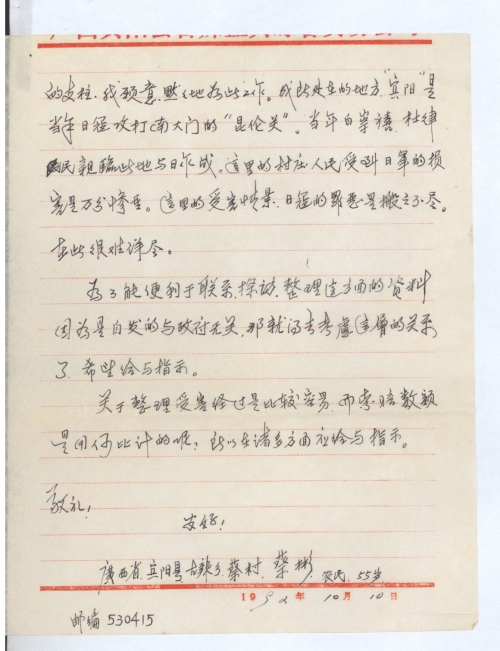 的支柱、我愿意默々地为此工作。我所处在的地方“宾阳”是
当年日寇攻打南大门的“昆伦关”。当年白崇禧、杜律
民亲临此地与日作战。这里的村庄人民受到日军的损
害是万分惨重。这里的受害情景、日寇的罪恶是搬之不尽。
在此很难详尽。
为了能便利于联系、探访、整理这方面的资料
因为是自发的与政府无关，那就得去考虑这层的关系
了、希些给与指示。
关于整理受害经过是比较容易、而索赔数额
是用何比计的呢；所以在诸多方面祈给与指示。
敬礼！
安好！
广西省、宾阳县古辣乡、蔡村、蔡彬、农民、55岁
1992年10月10日
邮编530415